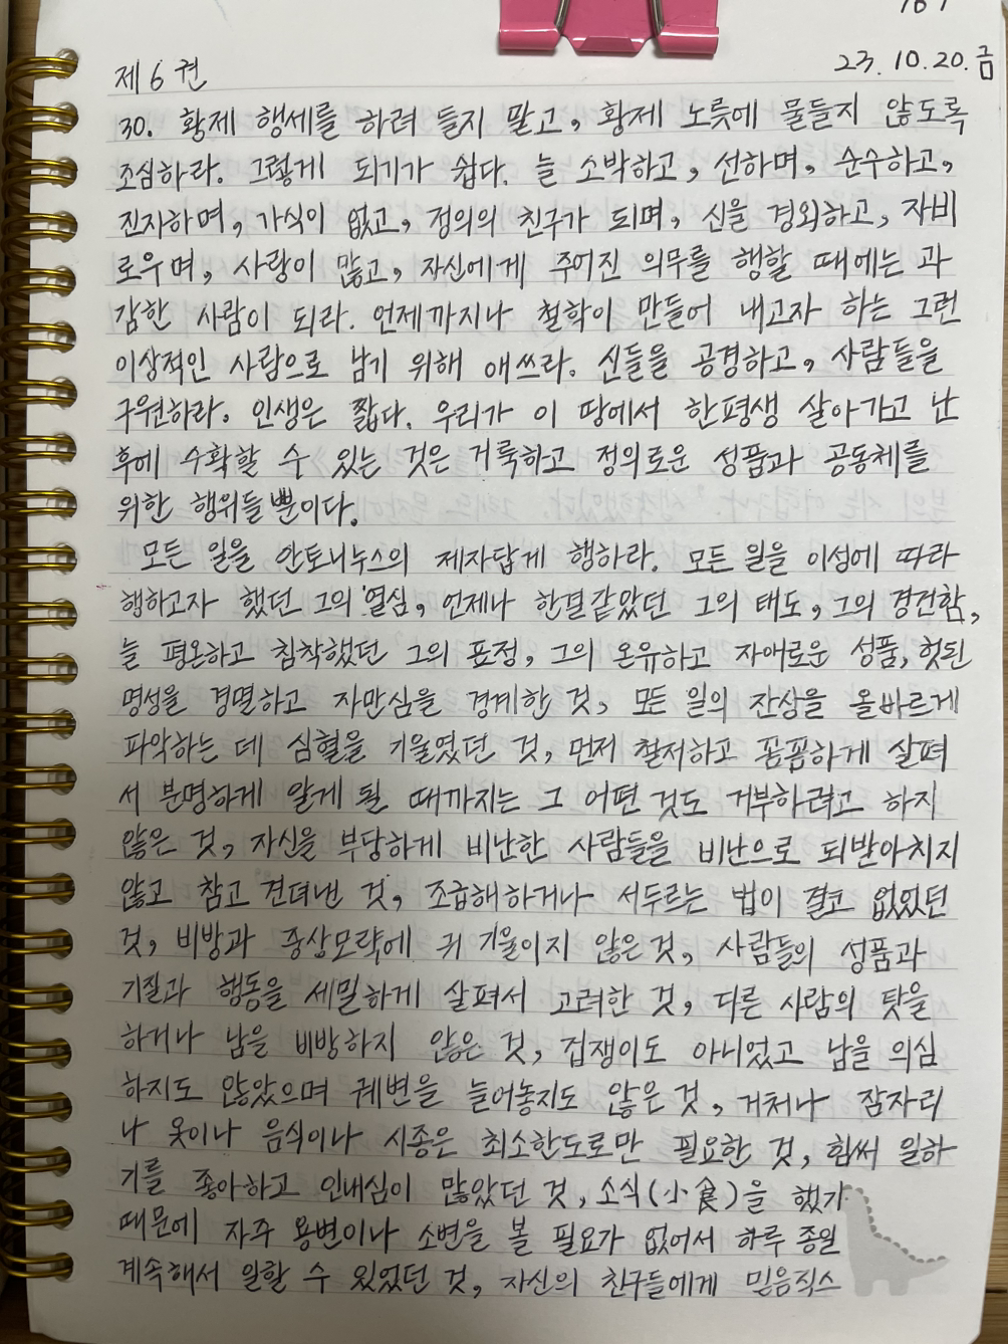 제 6 권
23. 10. 20. 금
30. 황제 행세를 하려 들지 말고, 황제 노릇에 물들지 않도록
조심하라. 그렇게 되기가 쉽다. 늘 소박하고, 선하며, 순수하고,
진지하며, 가식이 없고, 정의의 친구가 되며, 신을 경외하고, 자비
로우며, 사랑이 많고, 자신에게 주어진 의무를 행할 때에는 과
감한 사람이 되라. 언제까지나 철학이 만들어 내고자 하는 그런
이상적인 사람으로 남기 위해 애쓰라. 신들을 공경하고, 사람들을
구원하라. 인생은 짧다. 우리가 이 땅에서 한평생 살아가고 난
후에 수확할 수 있는 것은 거룩하고 정의로운 성품과 공동체를
위한 행위들뿐이다.
모든 일을 안토니누스의 제자답게 행하라. 모든 일을 이성에 따라
행하고자 했던 그의 열심, 언제나 한결같았던 그의 태도, 그의 경건함,
늘 평온하고 침착했던 그의 표정, 그의 온유하고 자애로운 성품, 헛된
명성을 경멸하고 자만심을 경계한 것, 모든 일의 잔상을 올바르게
파악하는 데 심혈을 기울였던 것, 먼저 철저하고 꼼꼼하게 살펴
서 분명하게 알게 될 때까지는 그 어떤 것도 거부하려고 하지
않은 것, 자신을 부당하게 비난한 사람들을 비난으로 되받아치지
않고 참고 견뎌낸 것, 조급해하거나 서두르는 법이 결코 없었던
것, 비방과 중상모략에 귀 기울이지 않은 것, 사람들의 성품과
기질과 행동을 세밀하게 살펴서 고려한 것, 다른 사람의 탓을
하거나 남을 비방하지 않은 것, 겁쟁이도 아니었고 남을 의심
하지도 않았으며 궤변을 늘어놓지도 않은 것, 거처나 잠자리
나 옷이나 음식이나 시종은 최소한도로만 필요한 것, 힘써 일하
기를 좋아하고 인내심이 많았던 것, 소식(小食)을 했기
때문에 자주 용변이나 소변을 볼 필요가 없어서 하루 종일
계속해서 일할 수 있었던 것, 자신의 친구들에게 믿음직스